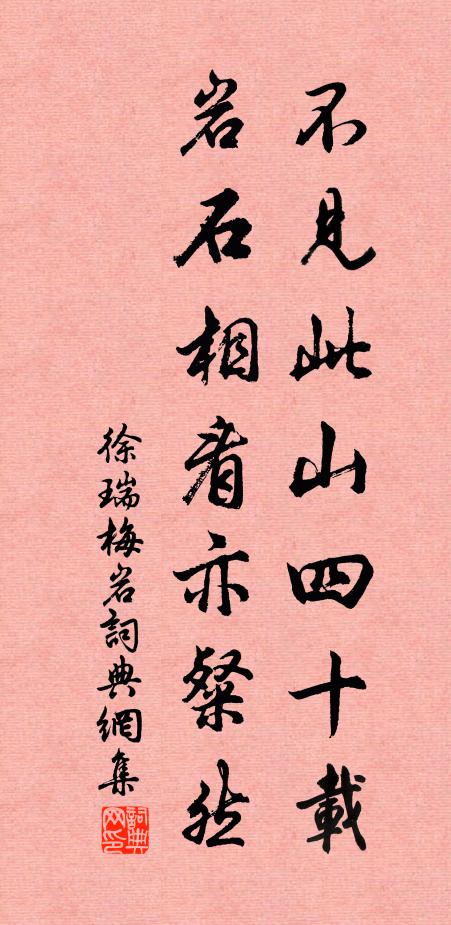 不見此山四十載
岩石相看亦粲然
徐瑞梅岩詞典網集
詞典网印